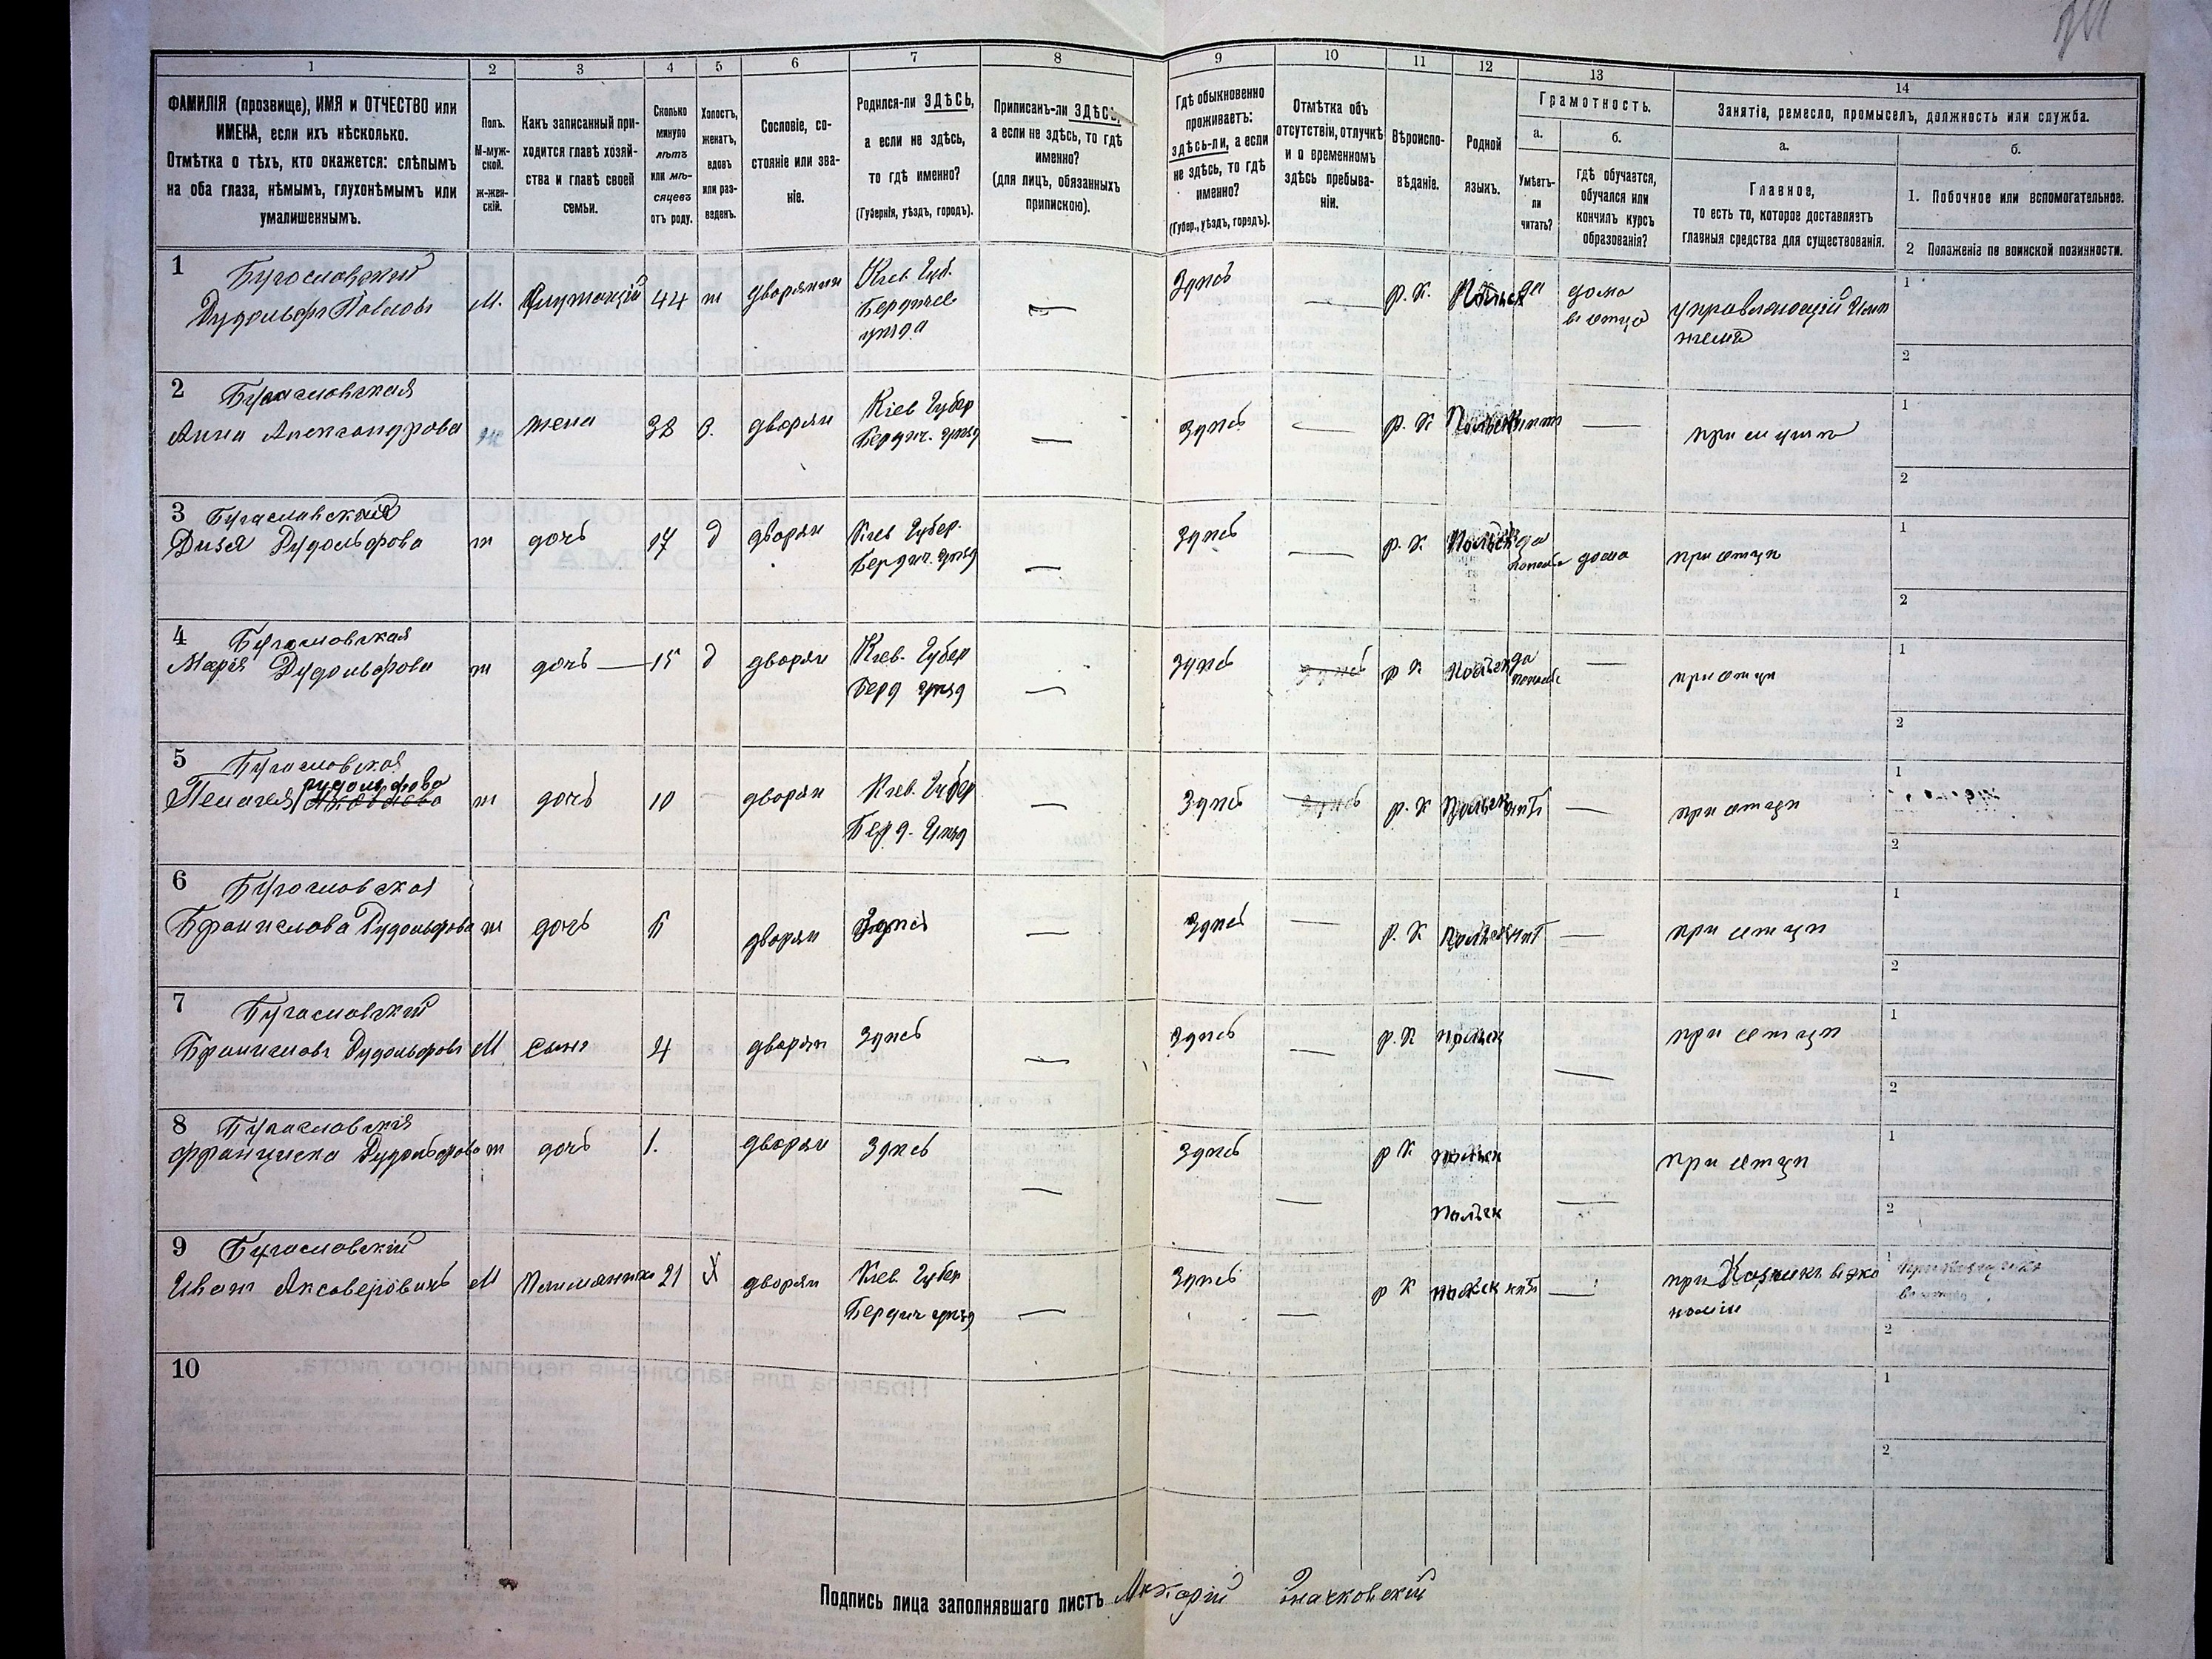 1 2 3 4 5 6 7 8 9 10 11 12 13 14
ФАМИЛІЯ (прозвище), ИМЯ и ОТЧЕСТВО или
ИМЕНА, если ихъ нѣсколько.
Отмѣтка о тѣхъ, кто окажется: слѣпымъ
на оба глаза, нѣмымъ, глухонѣмымъ или
умалишеннымъ.
Полъ.
М-муж-
ской.
ж-жен-
скій.
Какъ записанный при-
ходится главѣ хозяй-
ства и главѣ своей
семьи.
Сколько
минуло
лѣтъ
или мѣ-
сяцевъ
отъ роду.
Холостъ,
женатъ,
вдовъ
или раз-
веденъ.
Сословіе, со-
стояніе или зва-
ніе.
Родился-ли ЗДѢСЬ,
а если не здѣсь,
то гдѣ именно?
(Губернія, уѣздъ, городъ).
Приписанъ-ли ЗДѢСЬ,
а если не здѣсь, то гдѣ
именно?
(для лицъ, обязанныхъ
припискою).
Гдѣ обыкновенно
проживаетъ:
здѣсь-ли, а если
не здѣсь, то гдѣ
именно?
(Губер., уѣздъ, городъ).
Отмѣтка объ
отсутствіи, отлучкѣ
и о временномъ
здѣсь пребыва-
ніи.
Вѣроиспо-
вѣданіе.
Родной
языкъ.
Грамотность.
а.
Умѣетъ-
ли
читать?
б.
гдѣ обучается,
обучался или
кончилъ курсъ
образованія?
Занятія, ремесло, промыселъ, должность или служба.
а.
Главное,
то есть то, которое доставляетъ
главныя средства для существованія.
б.
1. Побочное или вспомогательное.
2 Положеніе по воинской повинности.
1 Бугославский
Рудольфъ Павловъ М. Служащій 44 ж дворянин Кіев. Губ.
Бердичев
уезда
— Здесь — р. к. Польск да дома
в отца
управляющій Име
нием
1
2
2 Бугасловская
Анна Александрова Ж жена 38 З. дворян Кіев Губер
Бердич. уезд
— Здесь — р. К Польск нет — при муже
1
2
3 Бугаславская
Рудольфова ж дочь 17 д дворян Кіев Губер.
Бердич. уезд
— Здесь — р. К Польск да
дома при отце
1
2
4 Бугасловская
Марія Рудольфова ж дочь — 15 д дворян Кіев. Губер
Берд уезд
— Здесь здесь р К Польск да
— при отце
1
2
5 Бугасловская
Пелагея Рудольфова ж дочь 10 дворян Кіев. Губер
Берд. Уезд
— Здесь здесь р. К Польск нет — при отце
1
2
6 Бугасловская
Брониславa Рудольфова ж дочь 6 дворян Здесь — Здесь — р. К Польск нет — при отце
1
2
7 Бугасловский
Брониславъ Рудольфовъ М сынъ 4 дворян Здесь — Здесь — р. К польск — при отце
1
2
8 Бугасловскія
Франциска Рудольфова ж дочь 1. дворян Здесь — Здесь — р К польск — при отце
польск
1
2
9 Бугасловскій
Иван Аксаверовичъ М Племянник 21 Х дворян Кіев Губер
Бердич уезд
— Здесь — р К польск нет — при Казчикъ в эко
номіи
1
2
10
1
2
Подпись лица заполнявшаго листъ Макарій Значковскій